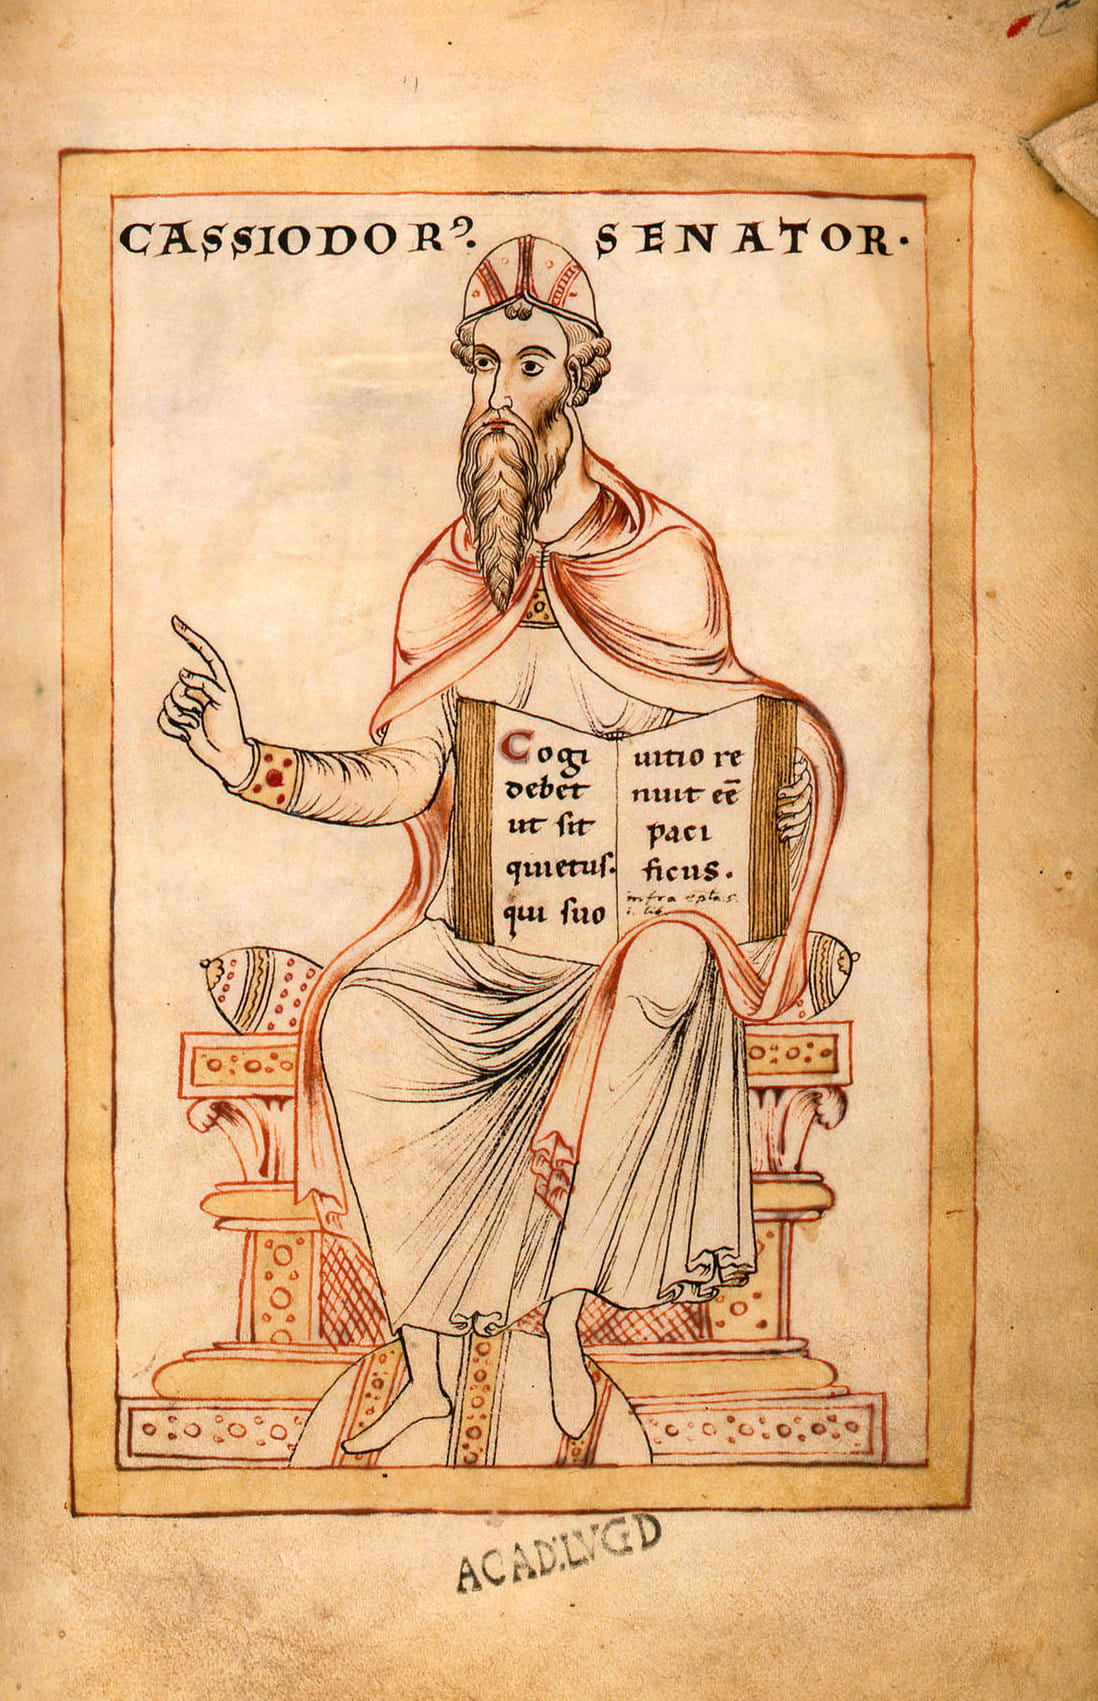 CASSIODORꝰ. SENATOR.
Cogi
debet
ut sit
quietus.
qui suo
uitio re
nuit eē
paci
ficus.
infra epła s.
i. lib.
ACAD. LVGD